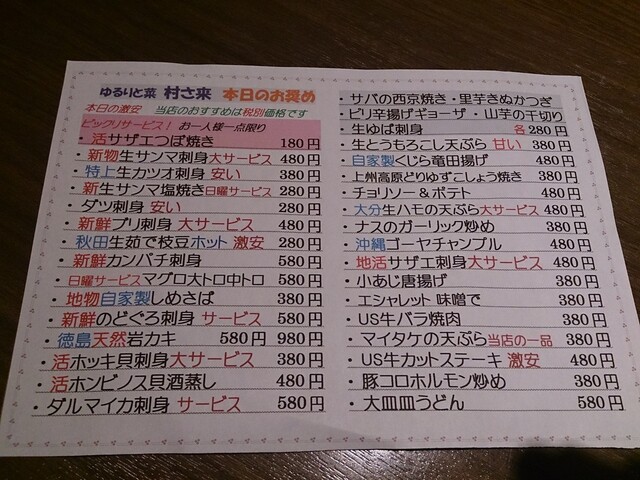 ゆるりと菜 村さ来 本日のお奨め
本日の激安 当店のおすすめは税別価格です
ビックリサービス! お一人様一点限り
・活サザエつぼ焼き 180円
・新物生サンマ刺身大サービス 480円
・特上生カツオ刺身 安い 380円
・新生サンマ塩焼き日曜サービス 280円
・ダツ刺身 安い 280円
・新鮮ブリ刺身 大サービス 480円
・秋田生茹で枝豆ホット 激安 280円
・新鮮カンパチ刺身 580円
・日曜サービスマグロ大トロ中トロ 580円
・地物自家製しめさば 380円
・新鮮のどぐろ刺身 サービス 580円
・徳島天然岩カキ 580円 980円
・活ホッキ貝刺身大サービス 380円
・活ホンビノス貝酒蒸し 480円
・ダルマイカ刺身 サービス 580円
・サバの西京焼き・里芋きぬかつぎ
・ピリ辛揚げギョーザ・山芋の千切り
・生ゆば刺身 各280円
・生とうもろこし天ぷら 甘い 380円
・自家製くじら竜田揚げ 480円
・上州高原どりゆずこしょう焼き 380円
・チョリソー&ポテト 480円
・大分生ハモの天ぷら大サービス 480円
・ナスのガーリック炒め 380円
・沖縄ゴーヤチャンプル 480円
・地活サザエ刺身大サービス 480円
・小あじ唐揚げ 380円
・エシャレット 味噌で 380円
・US牛バラ焼肉 380円
・マイタケの天ぷら当店の一品 380円
・US牛カットステーキ 激安 480円
・豚コロホルモン炒め 380円
・大皿皿うどん 580円